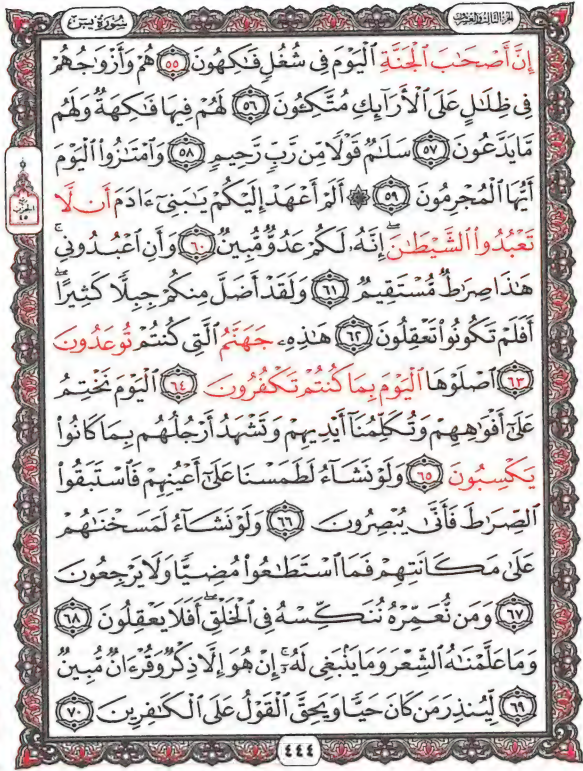 سورة يس
الجزء الثالث والعشرون
إِنَّ أَصْحَٰبَ ٱلْجَنَّةِ ٱلْيَوْمَ فِى شُغُلٍ فَٰكِهُونَ ٥٥ هُمْ وَأَزْوَٰجُهُمْ
فِى ظِلَٰلٍ عَلَى ٱلْأَرَآئِكِ مُتَّكِـُٔونَ ٥٦ لَهُمْ فِيهَا فَٰكِهَةٌ وَلَهُم
مَّا يَدَّعُونَ ٥٧ سَلَٰمٌ قَوْلًا مِّن رَّبٍّ رَّحِيمٍ ٥٨ وَٱمْتَٰزُوا۟ ٱلْيَوْمَ
أَيُّهَا ٱلْمُجْرِمُونَ ٥٩ ۞ أَلَمْ أَعْهَدْ إِلَيْكُمْ يَٰبَنِىٓ ءَادَمَ أَن لَّا
تَعْبُدُوا۟ ٱلشَّيْطَٰنَ ۖ إِنَّهُۥ لَكُمْ عَدُوٌّ مُّبِينٌ ٦٠ وَأَنِ ٱعْبُدُونِى ۚ
هَٰذَا صِرَٰطٌ مُّسْتَقِيمٌ ٦١ وَلَقَدْ أَضَلَّ مِنكُمْ جِبِلًّا كَثِيرًا ۖ
أَفَلَمْ تَكُونُوا۟ تَعْقِلُونَ ٦٢ هَٰذِهِۦ جَهَنَّمُ ٱلَّتِى كُنتُمْ تُوعَدُونَ
٦٣ ٱصْلَوْهَا ٱلْيَوْمَ بِمَا كُنتُمْ تَكْفُرُونَ ٦٤ ٱلْيَوْمَ نَخْتِمُ
عَلَىٰٓ أَفْوَٰهِهِمْ وَتُكَلِّمُنَآ أَيْدِيهِمْ وَتَشْهَدُ أَرْجُلُهُم بِمَا كَانُوا۟
يَكْسِبُونَ ٦٥ وَلَوْ نَشَآءُ لَطَمَسْنَا عَلَىٰٓ أَعْيُنِهِمْ فَٱسْتَبَقُوا۟
ٱلصِّرَٰطَ فَأَنَّىٰ يُبْصِرُونَ ٦٦ وَلَوْ نَشَآءُ لَمَسَخْنَٰهُمْ
عَلَىٰ مَكَانَتِهِمْ فَمَا ٱسْتَطَٰعُوا۟ مُضِيًّا وَلَا يَرْجِعُونَ
٦٧ وَمَن نُّعَمِّرْهُ نُنَكِّسْهُ فِى ٱلْخَلْقِ ۖ أَفَلَا يَعْقِلُونَ ٦٨
وَمَا عَلَّمْنَٰهُ ٱلشِّعْرَ وَمَا يَنۢبَغِى لَهُۥٓ ۚ إِنْ هُوَ إِلَّا ذِكْرٌ وَقُرْءَانٌ مُّبِينٌ
٦٩ لِّيُنذِرَ مَن كَانَ حَيًّا وَيَحِقَّ ٱلْقَوْلُ عَلَى ٱلْكَٰفِرِينَ ٧٠
الحزب
٤٥
٤٤٤